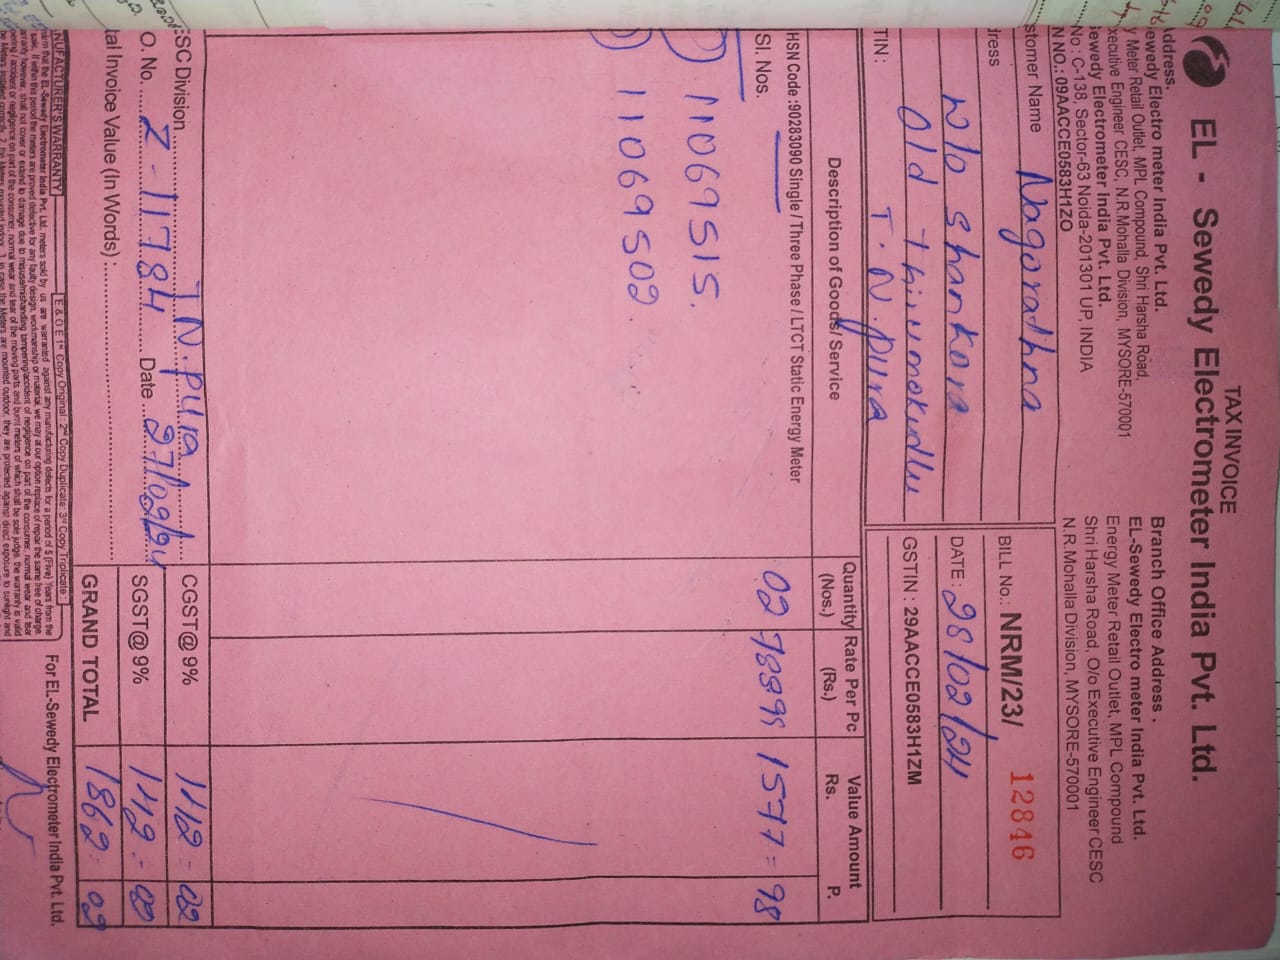 TAX INVOICE
EL - Sewedy Electrometer India Pvt. Ltd.
Address.
Sewedy Electro meter India Pvt. Ltd.
y Meter Retail Outlet, MPL Compound, Shri Harsha Road,
xecutive Engineer CESC, N.R.Mohalla Division, MYSORE-570001
Sewedy Electrometer India Pvt. Ltd.
No : C-138, Sector-63 Noida-201301 UP, INDIA
N NO.: 09AACCE0583H1ZO
Branch Office Address .
EL-Sewedy Electro meter India Pvt. Ltd.
Energy Meter Retail Outlet, MPL Compound
Shri Harsha Road, O/o Executive Engineer CESC
N.R.Mohalla Division, MYSORE-570001
stomer Name Nagorathna
dress W/o Shankora
Old Thirumakudlu
T.N.pura
TIN :
BILL No.: NRM/23/ 12846
DATE : 28/02/24
GSTIN : 29AACCE0583H1ZM
Description of Goods/ Service Quantity (Nos.) Rate Per Pc (Rs.) Value Amount Rs. P.
HSN Code :90283090 Single / Three Phase / LTCT Static Energy Meter
Sl. Nos. 02 78899 1577 = 98
11069515.
11069502.
ESC Division T.N.pura
O. No. Z-11784 Date 27/02/24
al Invoice Value (In Words) :
CGST@9% 142 - 02
SGST@9% 142 - 02
GRAND TOTAL 1862 - 02
E & O E 1st Copy Original : 2nd Copy Duplicate: 3rd Copy Triplicate :
NUFACTURER'S WARRANTY
For EL-Sewedy Electrometer India Pvt. Ltd.